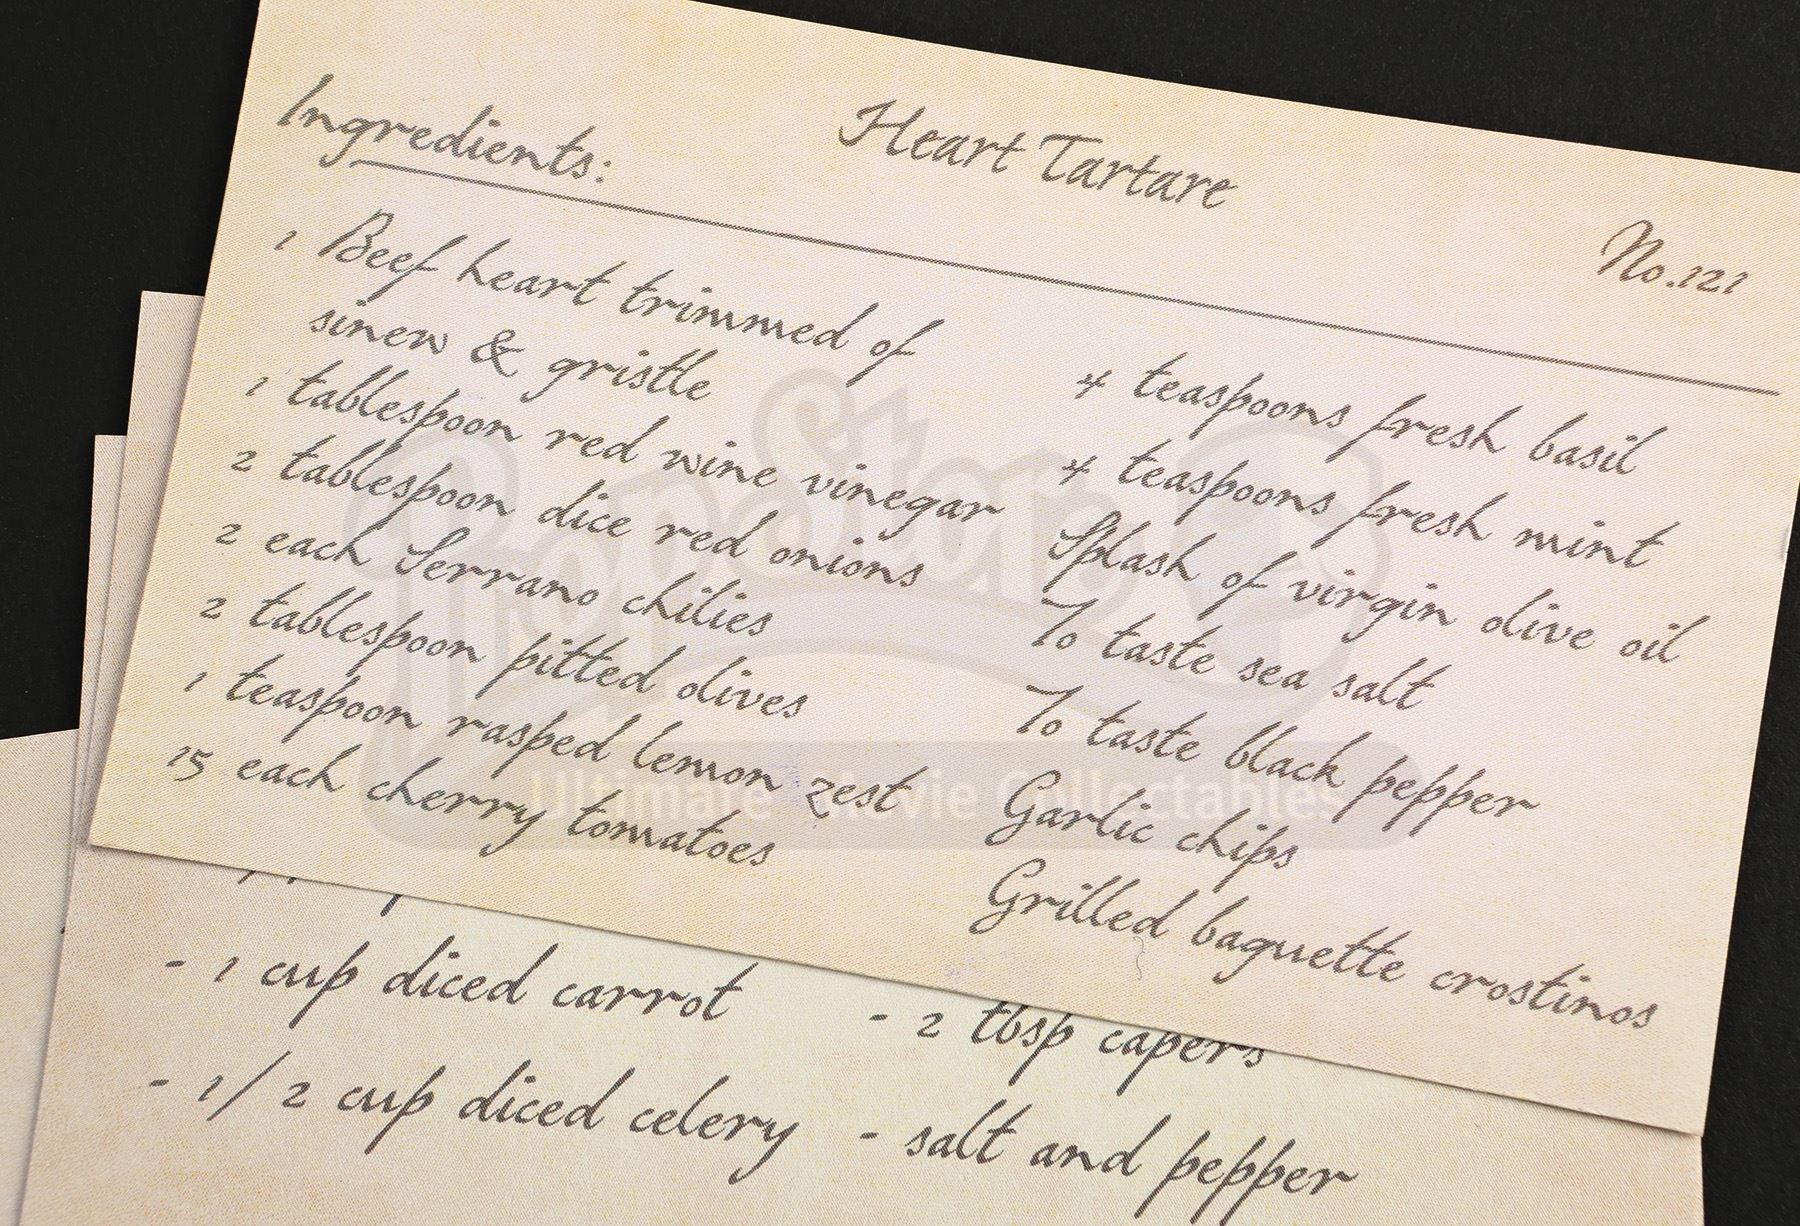 Heart Tartare
Ingredients:
No.121
1 Beef heart trimmed of
sinew & gristle
1 tablespoon red wine vinegar
2 tablespoon dice red onions
2 each Serrano chilies
2 tablespoon pitted olives
1 teaspoon rasped lemon zest
15 each cherry tomatoes
4 teaspoons fresh basil
4 teaspoons fresh mint
Splash of virgin olive oil
To taste sea salt
To taste black pepper
Garlic chips
Grilled baguette crostinos
- 1 cup diced carrot
- 1/2 cup diced celery
- 2 tbsp capers
- salt and pepper
PropStore
Ultimate Movie Collectables